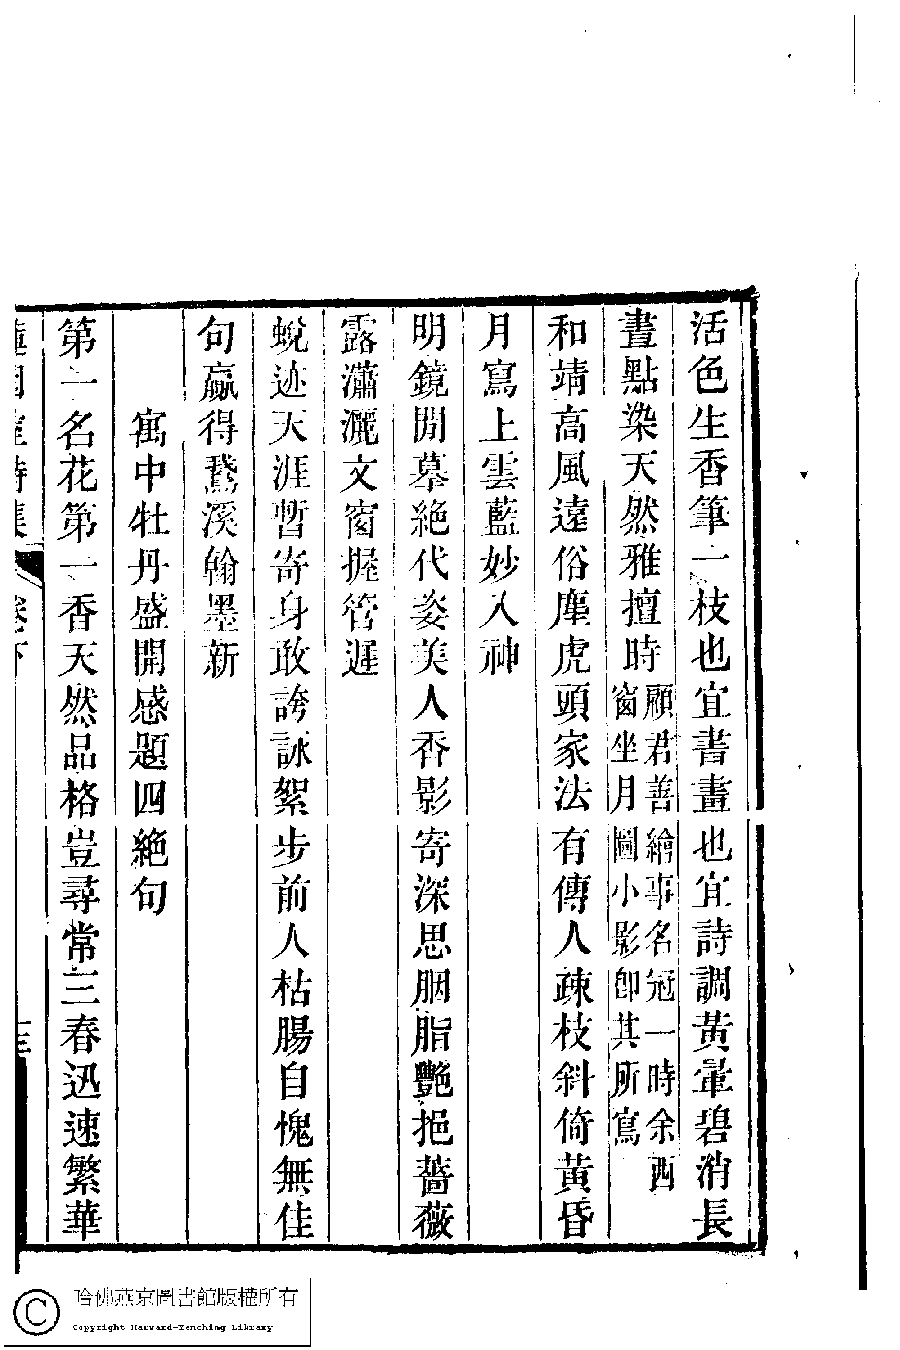 活色生香筆一枝也宜書畫也宜詩調黃暈碧消長
晝點染天然雅擅時顧君善繪事名冠一時余西窗坐月圖小影卽其所寫
和靖高風遠俗塵虎頭家法有傳人疎枝斜倚黃昏
月寫上雲藍妙入神
明鏡閒摹絶代姿美人香影寄深思胭脂艷挹薔薇
露瀟灑文窗握管遲
蛻迹天涯暫寄身敢誇詠絮步前人枯腸自愧無佳
句贏得鵞溪翰墨新
寓中牡丹盛開感題四絶句
第一名花第一香天然品格豈尋常三春迅速繁華
卷下
哈佛燕京圖書館版權所有
Copyright Harvard-Yenching Library